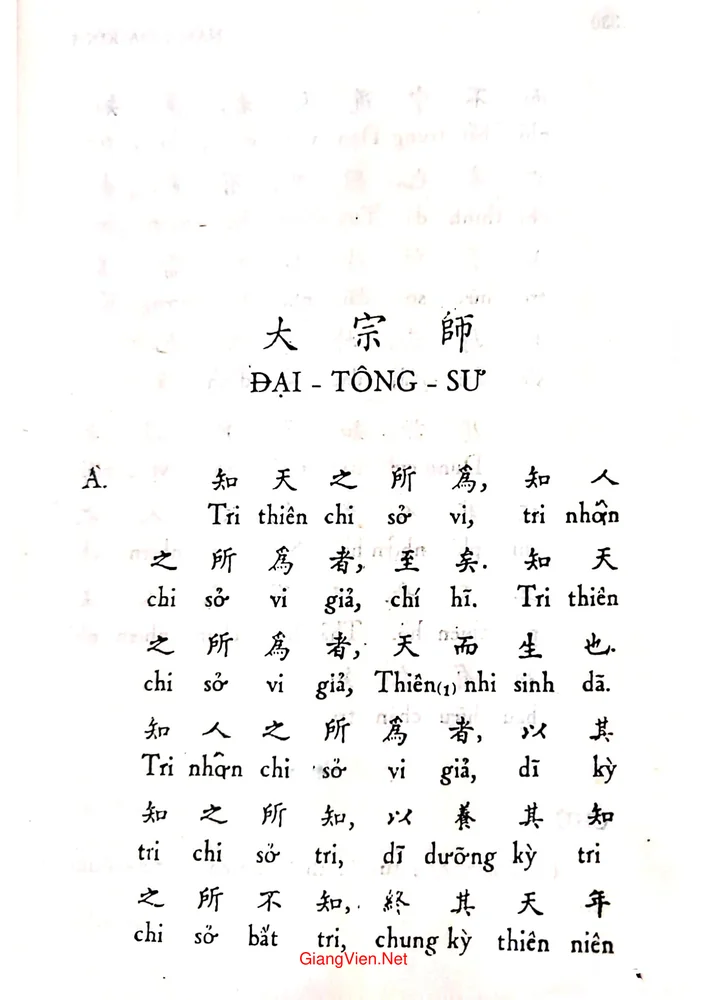 大 宗 師
ĐẠI - TÔNG - SƯ
A. 知 天 之 所 爲, 知 人
Tri thiên chi sở vi, tri nhơn
之 所 爲 者, 至 矣. 知 天
chi sở vi giả, chí hĩ. Tri thiên
之 所 爲 者, 天 而 生 也.
chi sở vi giả, Thiên(1) nhi sinh dã.
知 人 之 所 爲 者, 以 其
Tri nhơn chi sở vi giả, dĩ kỳ
知 之 所 知, 以 養 其 知
tri chi sở tri, dĩ dưỡng kỳ tri
之 所 不 知, 終 其 天 年
chi sở bất tri, chung kỳ thiên niên
GiangVien.Net